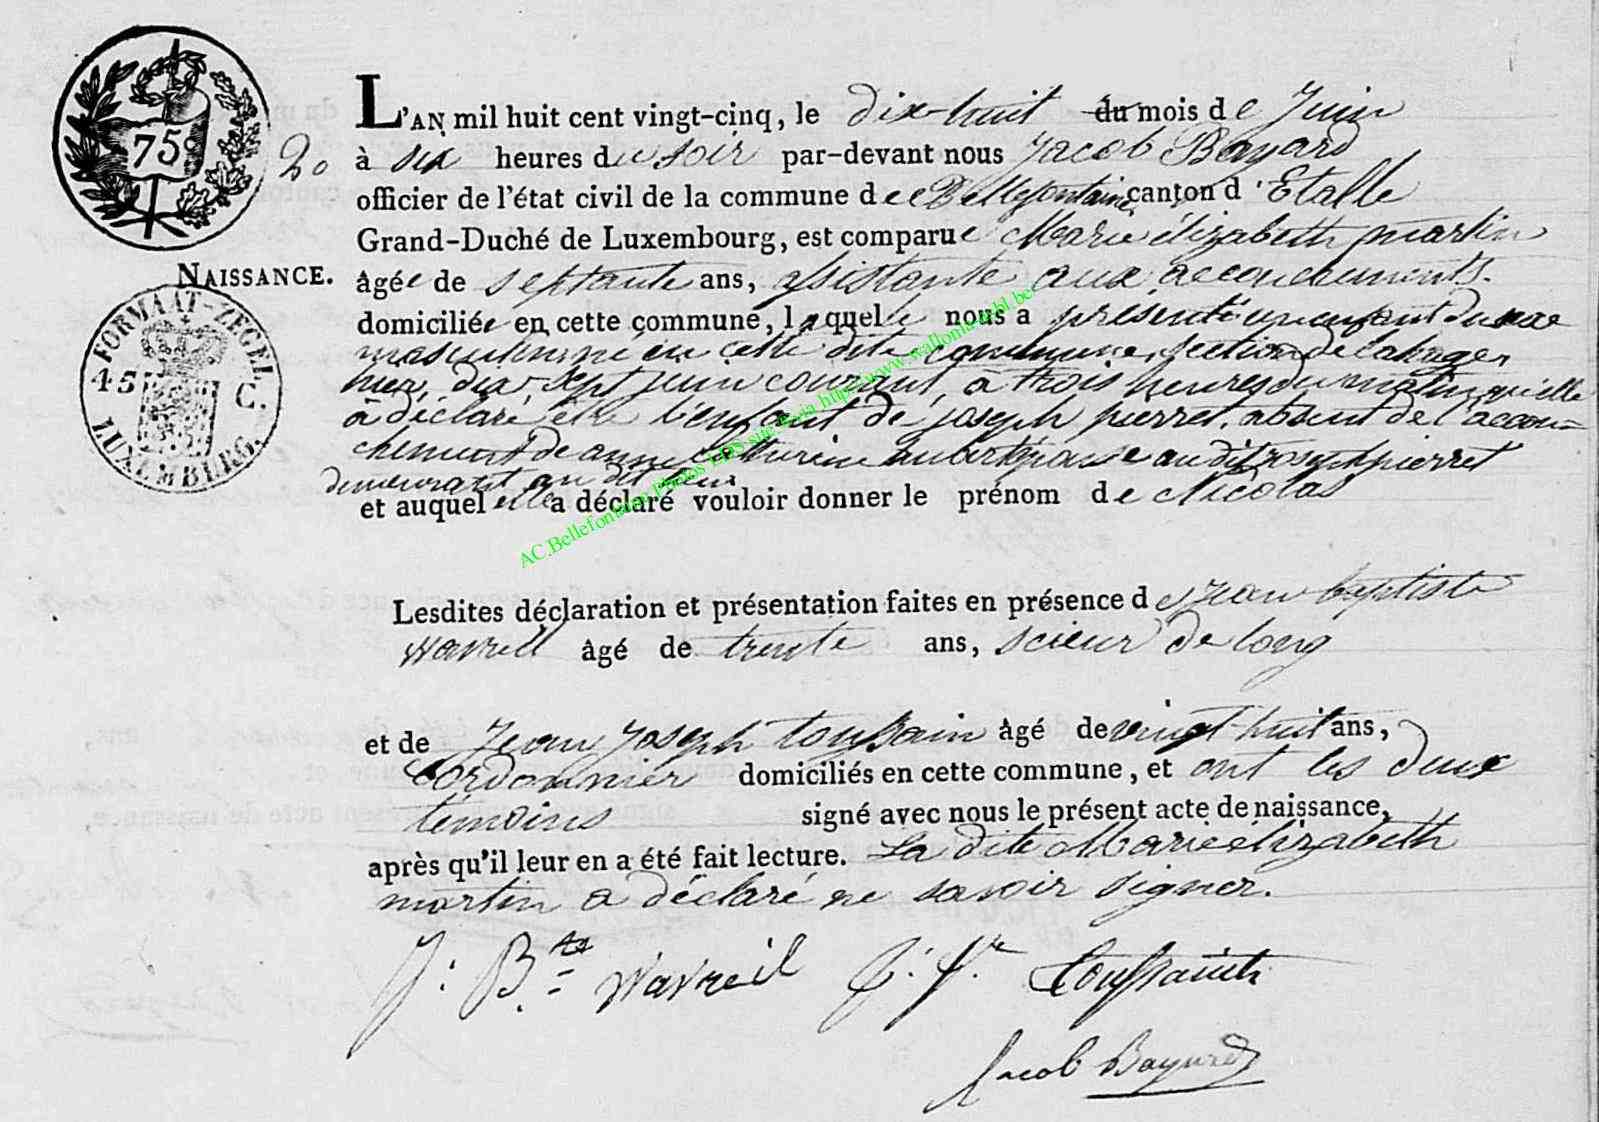 75
L'AN mil huit cent vingt-cinq, le dix-huit du mois de Juin
20 à six heures du soir par-devant nous Jacob Bayard
officier de l'état civil de la commune de Bellefontaine, canton d'Etalle
Grand-Duché de Luxembourg, est comparue Marie élizabeth martin
NAISSANCE. âgée de septante ans, assistante aux accouchements.
domiciliée en cette commune, laquelle nous a présenté un enfant du sexe
masculin né en cette dite commune, section de lahage,
hier, dix sept juin courant, à trois heures du matin, qu'elle
à déclaré, être l'enfant de joseph pierret, absent de l'accou=
chement de anne catherine au dit joseph pierret
demeurant au dit lieu
et auquel elle a déclaré vouloir donner le prénom de Nicolas
FORMAAT-ZEGEL.
45 C.
LUXEMBURG.
AC.Bellefontaine Photos LDS site Geria http://www.wallonia.asbl.be
Lesdites déclaration et présentation faites en présence de jean baptiste
wavreil âgé de trente ans, scieur de long
et de Jean Joseph toussain âgé de vingt-huit ans,
Cordonnier domiciliés en cette commune, et ont les deux
témoins signé avec nous le présent acte de naissance,
après qu'il leur en a été fait lecture. La dite Marie élizabeth
martin a déclaré ne savoir signer.
J: B.te wavreil J. toussaint
Jacob Bayard